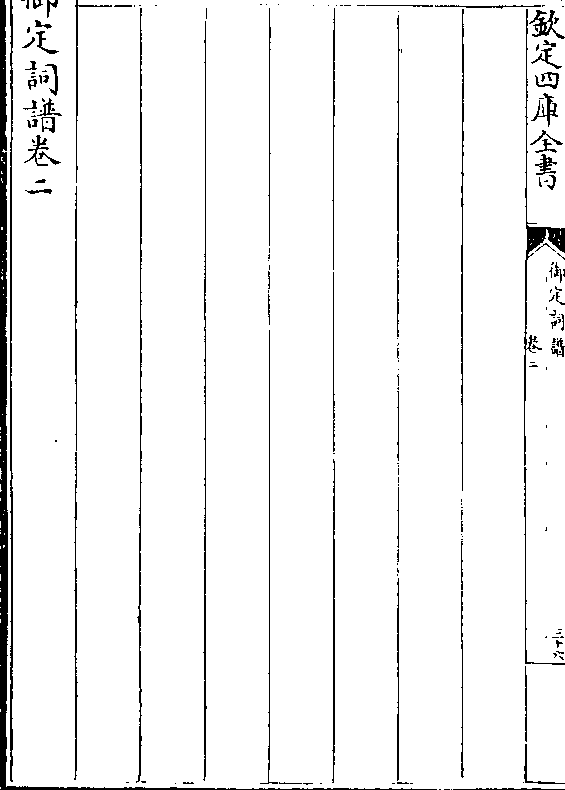 欽定四庫全書
御定詞譜
卷二
三十六
御定詞譜卷二